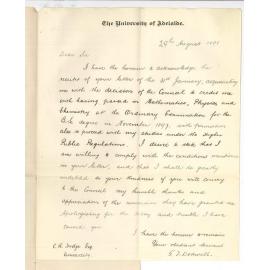 The University of Adelaide.
29th August
Dear Sir
I have the honour to acknowledge the
receipt of your letter of the 31st January, acquainting
me with the decision of the Council to credit me
with having passed in Mathematics, Physics and
Chemistry at the Ordinary Examination for the
B.Sc. degree in November 1897, with permission
also to proceed with my studies under the
Public Regulations. I desire to state that I
am willing to comply with the conditions
in your letter, and that I shall be greatly
indebted to your kindness if you will convey
to the Council my humble thanks and
appreciation of the they have granted me
Apologising for the delay and trouble I have
caused you
I have the honour to remain
Your obedient servant
C. R. Hodge Esq.
University